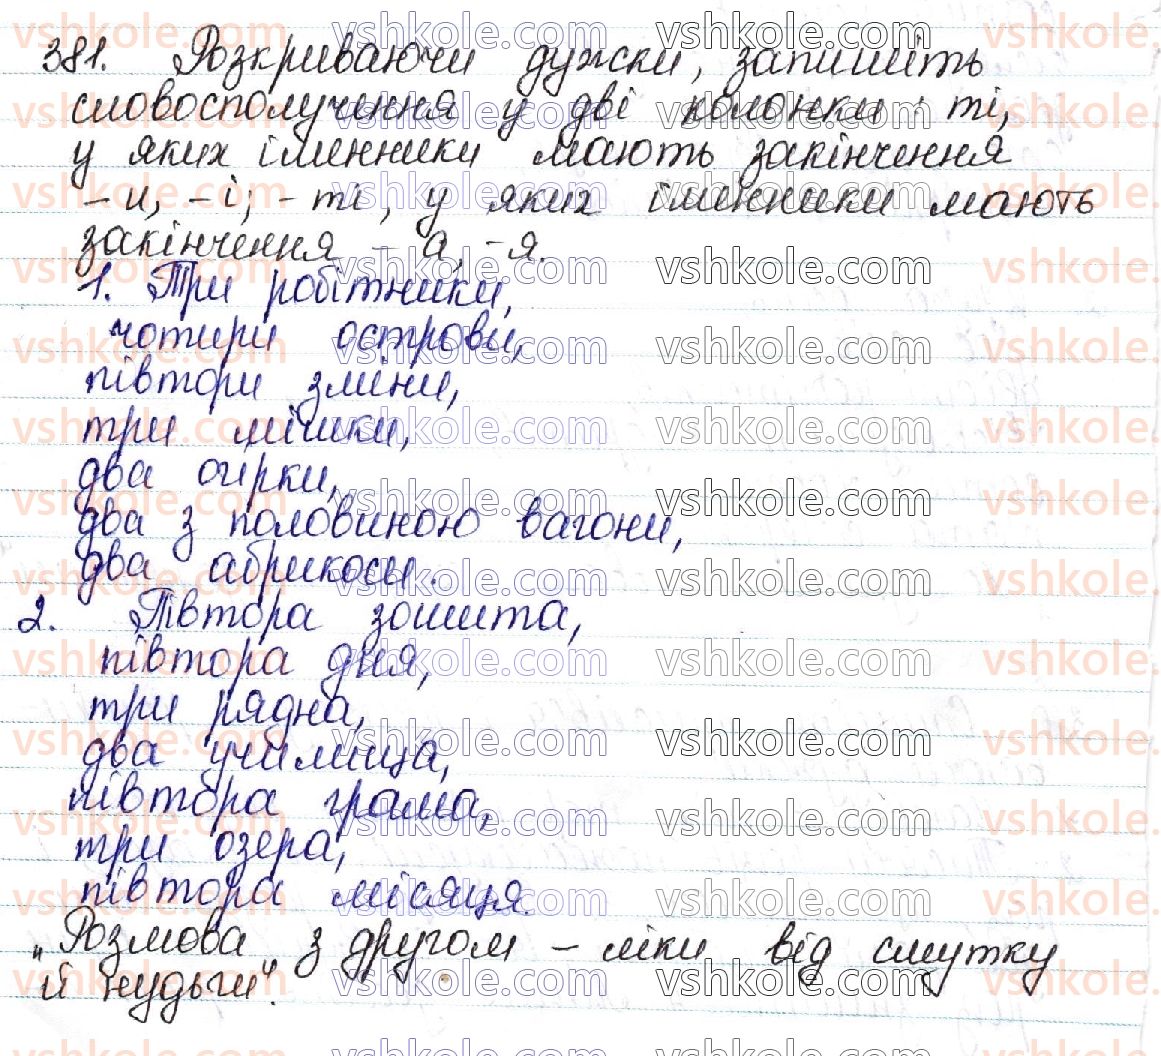 381. Розкриваючи дужки, запишіть
словосполучення у дві колонки: ті,
у яких іменники мають закінчення
-и, -і; - ті, у яких іменники мають
закінчення - а, -я.
1. Три робітники,
чотири острови,
півтори зміни,
три мішки,
два огірки,
два з половиною вагони,
два абрикоси.
2. Півтора зошита,
півтора дня,
три рядна,
два училища,
півтора грама,
три озера,
півтора місяця.
„Розмова з другом – ліки від смутку
й нудьги".